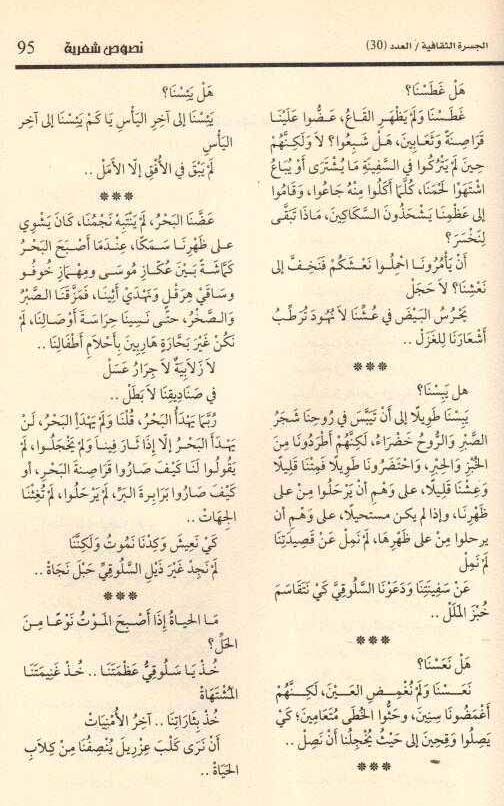 الجسرة الثقافية / العدد (30)
نصوص شعرية 95
هَل غَطَسْنَا؟
غَطَسْنَا وَلَمْ يَظْهَرِ القَاعُ، عَضُّوا عَلَيْنَا
قَرَاصِنَةً وَثَعَابِينَ، هَلْ شَبِعُوا؟ لاَ وَلَكِنَّهُمْ
حِينَ لَمْ يَتْرُكُوا فِي السَّفِينَةِ مَا يُشْتَرَى أَوْ يُبَاعُ
اشْتَهَوْا لَحْمَنَا، كُلَّمَا أَكَلُوا مِنْهُ جَاعُوا، وَقَامُوا
إِلى عَظْمِنَا يَشْحَذُونَ السَّكَاكِينَ، مَاذَا تَبَقَّى
لِنَخْسَرَ؟
أَنْ يَأْمُرُونَا احْمِلُوا نَعْشَكُمْ فَنَخِفَّ إِلى
نَعْشِنَا؟ لاَ حَجَلْ
يَحْرُسُ البَيْضَ فِي عُشِّنَا لاَ نُهُودَ تُرَطِّبُ
أَشْعَارَنَا لِلغَزَلْ ..
***
هل يَبِسْنَا؟
يَبِسْنَا طَوِيلًا إِلى أَنْ تَيَبَّسَ فِي رُوحِنَا شَجَرُ
الصَّبْرِ وَالرُّوحُ خَضْرَاءُ، لَكِنَّهُمْ أَطْرَدُونَا مِنَ
الخُبْزِ وَالحِبْرِ، وَاحْتَضَرُونَا طَوِيلًا فَمِتْنَا قَلِيلًا
وَعِشْنَا قَلِيلًا، عَلى وَهْمِ أَنْ يَرْحَلُوا مِنْ عَلى
ظَهْرِنَا، وَإِذا لم يكن مستحيلًا، عَلى وَهْمِ أن
يرحلوا مِنْ على ظَهْرِهَا، لَمْ نَمِلْ عَن قَصِيدَتِنَا
لَمْ نَمِلْ
عَنْ سَفِينَتِنَا وَدَعَوْنَا السَّلُوقِيَّ كَيْ نَتَقَاسَمَ
خُبْزَ المَلَلْ ..
***
هَلْ نَعَسْنَا؟
نَعَسْنَا وَلَمْ نُغْمِضِ العَيْنَ، لَكِنَّهُمْ
أَغْمَضُونَا سِنِينَ، وَحَثُّوا الخُطَى مُتَعَامِينَ؛ كَيْ
يَصِلُوا وَقِحِينَ إِلى حَيْثُ يُخْجِلُنَا أَنْ نَصِلْ ..
***
هَلْ يَئِسْنَا؟
يَئِسْنَا إِلى آخِرِ اليَأْسِ يَا كَمْ يَئِسْنَا إِلى آخِرِ
اليَأْسِ
لَمْ يَبْقَ فِي الأُفْقِ إِلَّا الأَمَلْ ..
***
عَضَّنَا البَحْرُ، لَمْ يَنْتَبِهْ نَجْمُنَا، كَانَ يَشْوِي
عَلى ظَهْرِنَا سَمَكًا، عِنْدَمَا أَصْبَحَ البَحْرُ
كَمَّاشَةً بَيْنَ عُكَّازِ مُوسَى وَمِهْمَازِ خُوفُو
وَسَاقَيْ هِرَقْلٍ وَنَهْدَيْ أَثِينَا، فَمَزَّقَنَا الصَّبْرُ
وَالصَّخْرُ، حَتَّى نَسِينَا حِرَاسَةَ أَوْصَالِنَا، لَمْ
نَكُنْ غَيْرَ بَحَّارَةٍ هَارِبِينَ بِأَحْلَامِ أَطْفَالِنَا ..
لاَ زَلَابِيَةٌ لاَ جِرَارُ عَسَلْ
فِي صَنَادِيقِنَا لاَ بَطَلْ ..
رُبَّمَا يَهْدَأُ البَحْرُ، قُلْنَا وَلَمْ يَهْدَإِ البَحْرُ، لَنْ
يَهْدَأَ البَحْرُ إِلَّا إِذَا ثَارَ فِينَا وَلَمْ يَخْجَلُوا، لَمْ
يَقُولُوا لَنَا كَيْفَ صَارُوا قَرَاصِنَةَ البَحْرِ، أو
كَيْفَ صَارُوا بَرَابِرَةَ البَرِّ، لَمْ يَرْحَلُوا، لَمْ تُغِثْنَا
الجِهَاتُ ..
كَيْ نَعِيشَ وَكِدْنَا نَمُوتُ وَلَكِنَّنَا
لَمْ نَجِدْ غَيْرَ ذَيْلِ السَّلُوقِيِّ حَبْلَ نَجَاةْ ..
***
مَا الحَيَاةُ إِذَا أَصْبَحَ المَوْتُ نَوْعًا مِنَ
الحَلِّ؟
خُذْ يَا سَلُوقِيُّ عَظْمَتَنَا .. خُذْ غَنِيمَتَنَا
المُشْتَهَاةْ
خُذْ بِثَارَاتِنَا .. آخِرُ الأُمْنِيَاتْ
أَنْ نَرَى كَلْبَ عِزْرِيلَ يُنْصِفُنَا مِنْ كِلَابِ
الحَيَاةْ ..